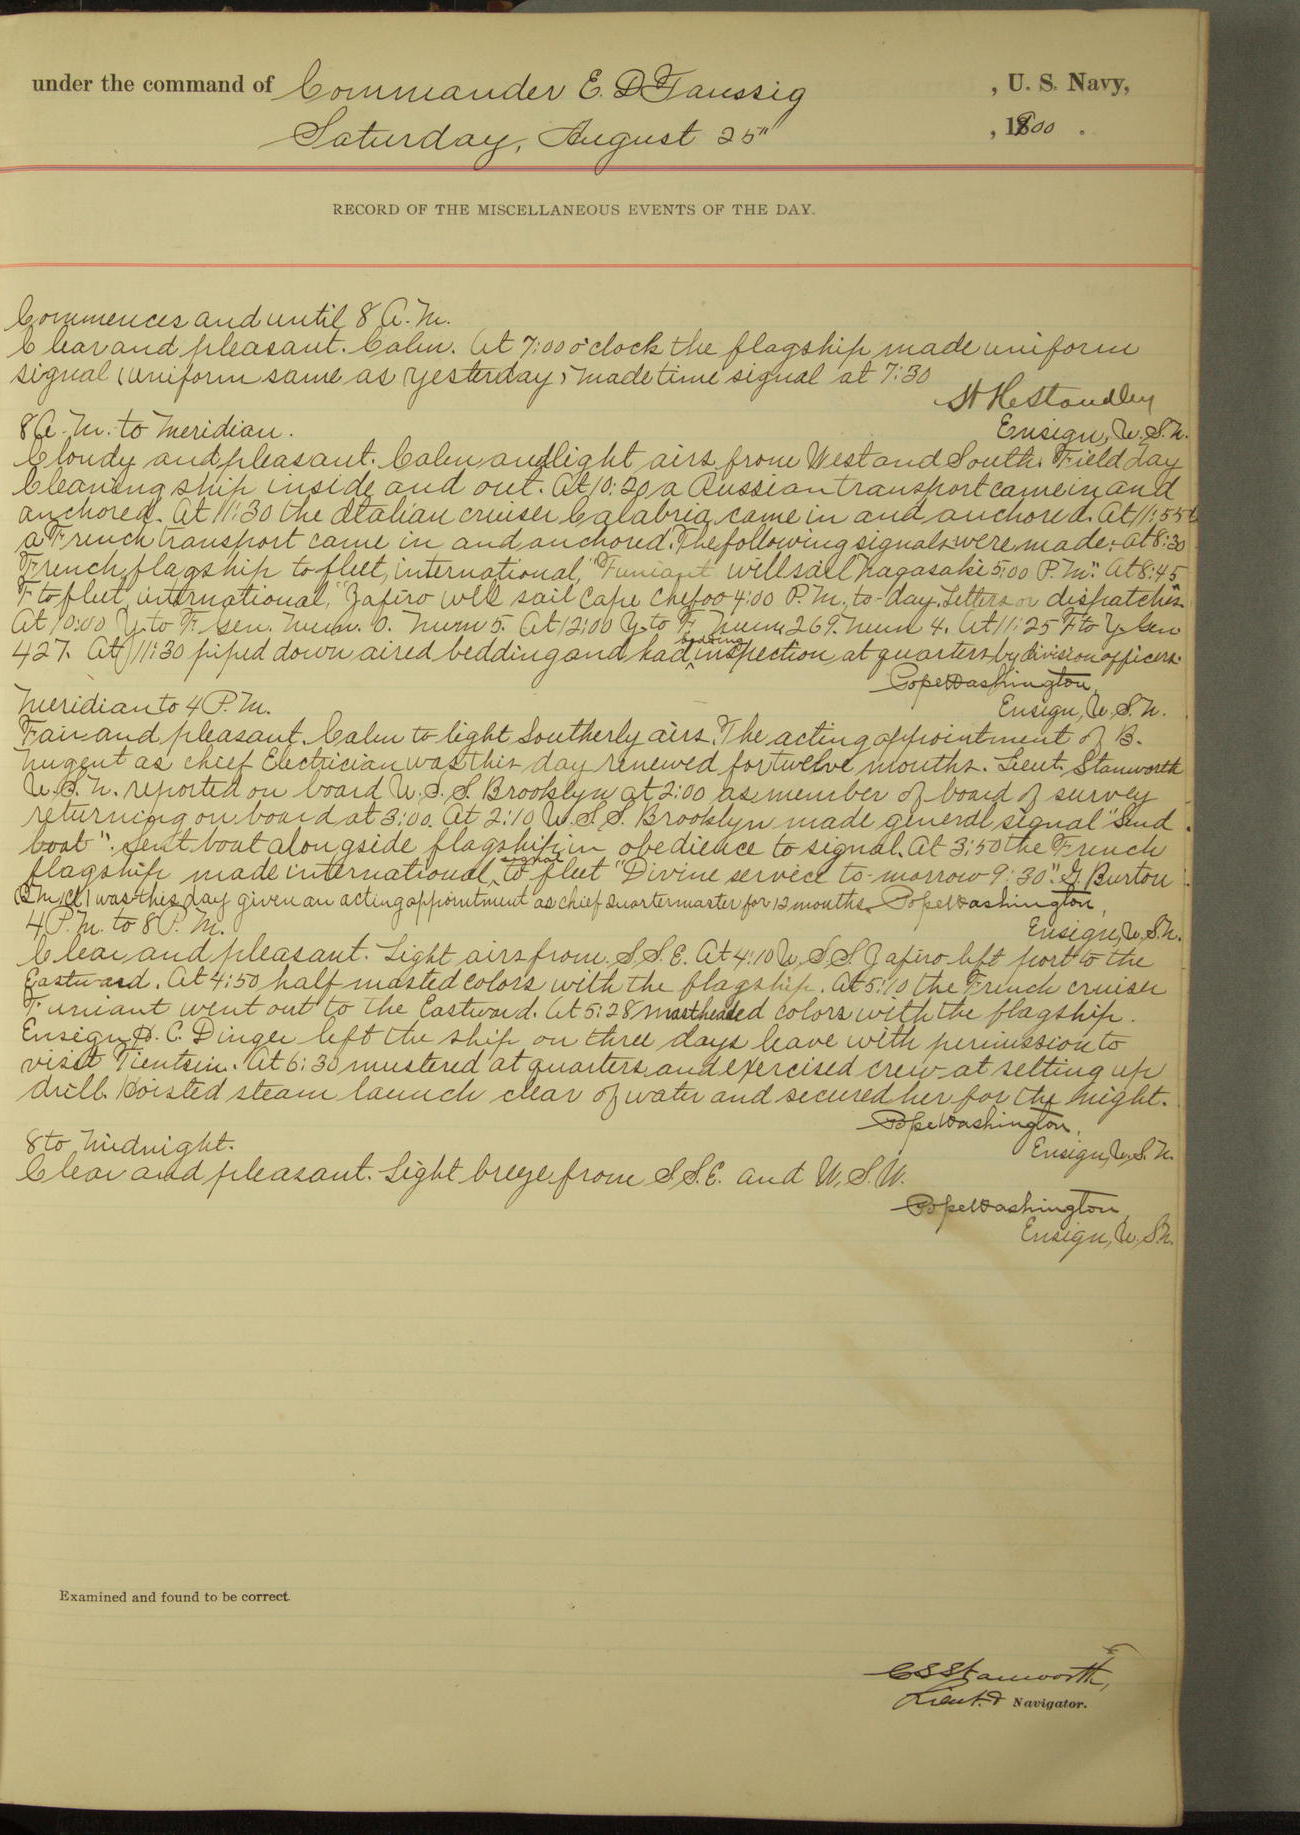 under the command of Commander E. D. Taussig , U. S. Navy,
Saturday, August 25" , 1900 .
RECORD OF THE MISCELLANEOUS EVENTS OF THE DAY.
Commences and until 8 A.M.
Clear and pleasant. Calm. At 7:00 o'clock the flagship made uniform
signal (uniform same as yesterday) made time signal at 7:30
W H Standley
Ensign, U.S.N.
8 A.M. to Meridian.
Cloudy and pleasant. Calm and light airs from West and South. Field day
Cleaning ship inside and out. At 10:20 a Russian transport came in and
anchored. At 11:30 the Italian cruiser Calabria came in and anchored. At 11:55
a French transport came in and anchored. The following signals were made: At 8:30
French flagship to fleet, international, "Funiant will sail Nagasaki 5:00 P.M." At 8:45
F to fleet, international, "Zafiro will sail Cape Chefoo 4:00 P.M., to-day. Letters or dispatches.
At 10:00 Y to F Gen. Num. 0. Num 5. At 12:00 Y to F Num 269. Num 4. At 11:25 F to Y Gen
427. At 11:30 piped down aired bedding and had bedding inspection at quarters by division officers.
Pope Washington,
Ensign, U.S.N.
Meridian to 4 P.M.
Fair and pleasant. Calm to light Southerly airs. The acting appointment of B.
Nugent as chief Electrician was this day renewed for twelve months. Lieut. Stanworth
U.S.N. reported on board U.S.S. Brooklyn at 2:00 as member of board of survey
returning on board at 3:00. At 2:10 U.S.S. Brooklyn made general signal "Send
boat". Sent boat alongside flagship in obedience to signal. At 3:50 the French
flagship made international signal to fleet "Divine service to-morrow 9:30". G. Burton
was this day given an acting appointment as chief quartermaster for 12 months. Pope Washington,
Ensign, U.S.N.
4 P.M. to 8 P.M.
Clear and pleasant. Light airs from S.S.E. At 4:10 U.S.S. Zafiro left port to the
Eastward. At 4:50 half masted colors with the flagship. At 5:10 the French cruiser
Funiant went out to the Eastward. At 5:28 mastheaded colors with the flagship.
Ensign H. C. Dinger left the ship on three days leave with permission to
visit Tientsin. At 6:30 mustered at quarters and exercised crew at setting up
drill. Hoisted steam launch clear of water and secured her for the night.
Pope Washington,
Ensign, U.S.N.
8 to Midnight.
Clear and pleasant. Light breeze from S.S.E. and W.S.W.
Pope Washington,
Ensign, U.S.N.
Examined and found to be correct.
C S Stanworth,
Lieut. & Navigator.